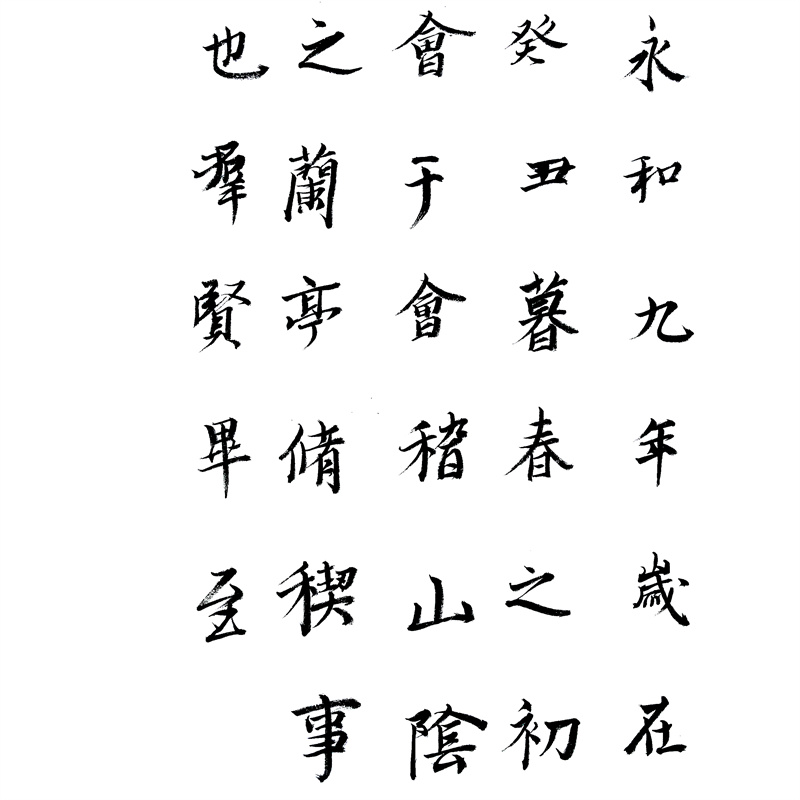 永和九年歲在
癸丑暮春之初
會于會稽山陰
之蘭亭脩稧事
也羣賢畢至